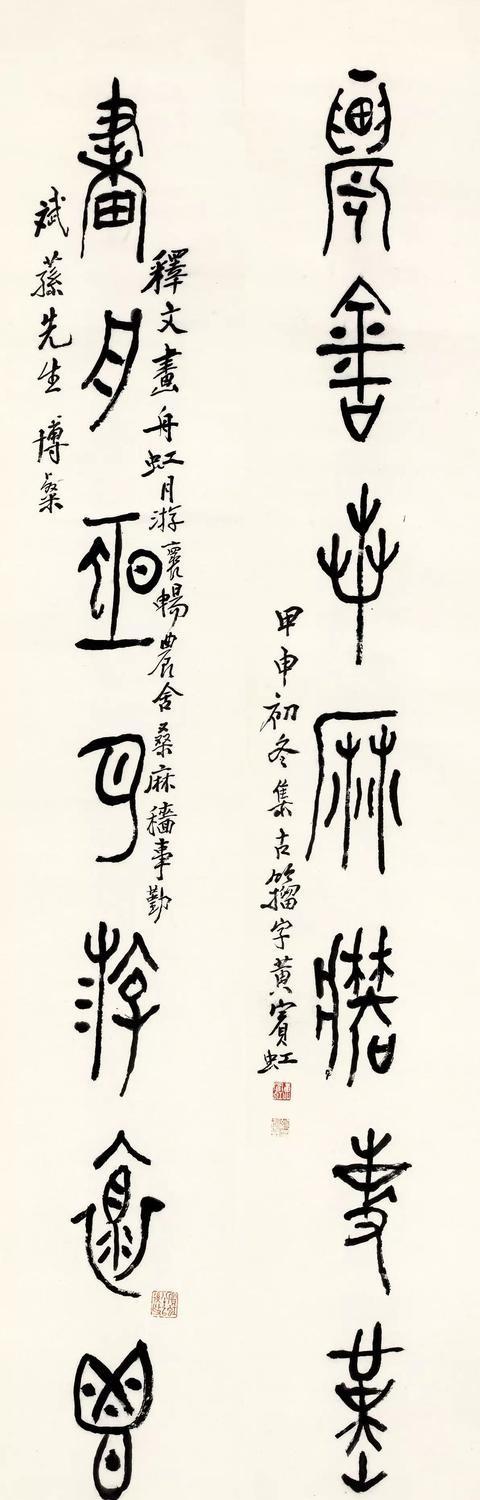 農舍桑麻穡事勤
甲申初冬集古籀字黃賓虹
釋文畫舟虹月游褱暢農舍桑麻穡事勤
畫舟虹月游褱暢
斌蓀先生博粲